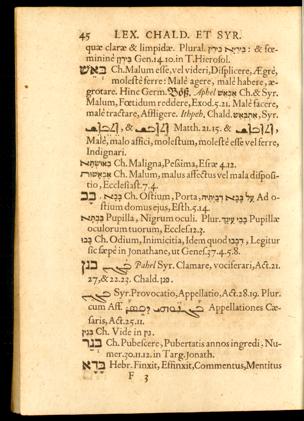 45 LEX. CHALD. ET SYR.
quæ claræ & limpidæ. Plural. & fœ-
mininè Gen.14.10.in T.Hierosol.
באש Ch.Malum esse, vel videri, Displicere, Ægrè,
molestè ferre: Malè agere, malè habere, æ-
grotare. Hinc Germ. Böß. Aphel Ch.& Syr.
Malum, Fœtidum reddere, Exod.5.21. Malè facere,
malè tractare, Affligere. Ithpeh. Chald. Syr.
& Matth.21.15. &
Malè, malo affici, molestum, molestè esse vel ferre,
Indignari.
Ch. Maligna, Pessima, Esræ 4.12.
Ch. Malum, malus affectus vel mala disposi-
tio, Ecclesiast.7.4.
בב Ch. Ostium, Porta, Ad o-
stium domus ejus, Esth.5.14.
Pupilla, Nigrum oculi. Plur. Pupillæ
oculorum tuorum, Eccles.12.3.
Ch. Odium, Inimicitia, Idem quod Legitur
sic sæpè in Jonathane, ut Genes.37.4.5.8.
Pahel Syr. Clamare, vociferari, Act.21.
27,& 22.23. Chald.
Syr. Provocatio, Appellatio, Act.28.19. Plur.
cum Aff. Appellationes Cæ-
saris, Act.25.11.
Ch. Vide in
בגר Ch. Pubescere, Pubertatis annos ingredi; Nu-
mer.30.11.12. in Targ. Jonath.
בדא Hebr. Finxit, Effinxit, Commentus, Mentitus
F 3